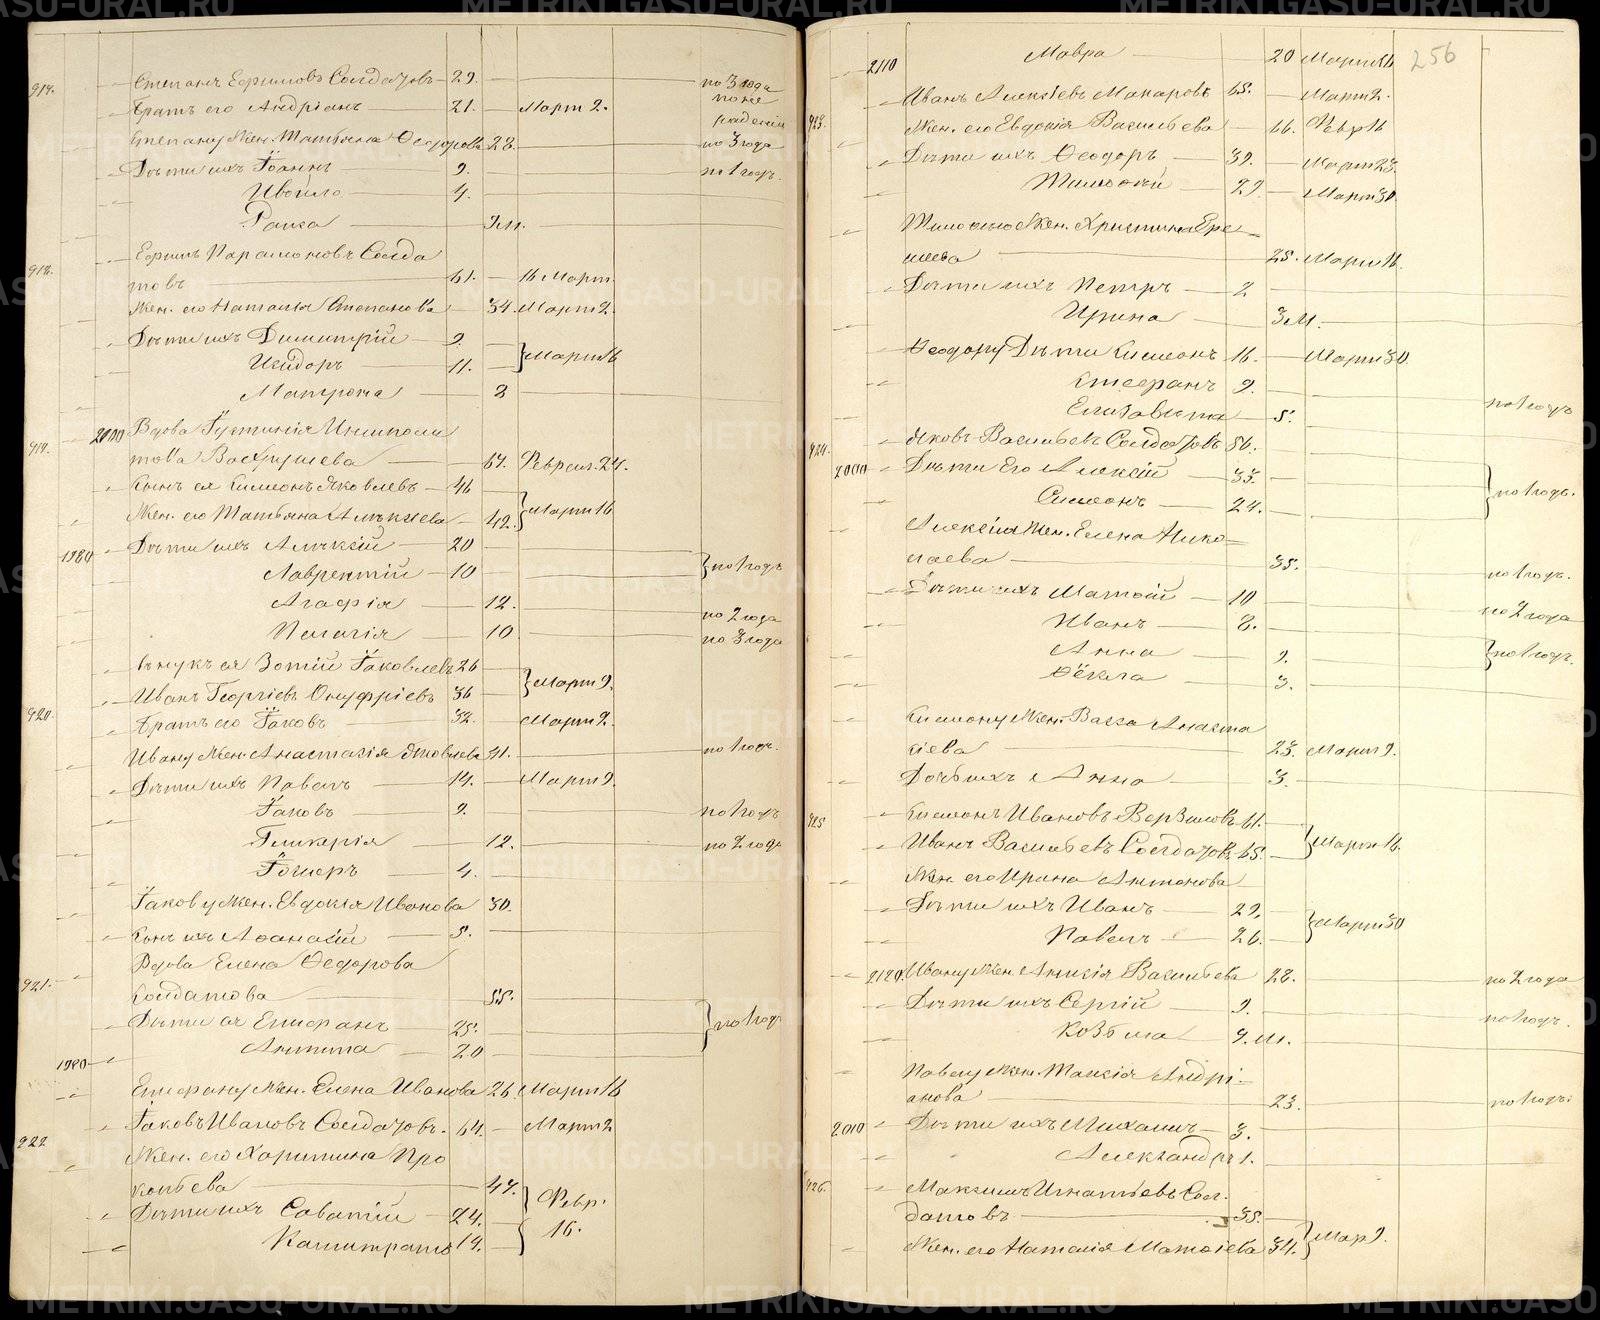 917. Степанъ Ефимовъ Солдатовъ 29. по 3 года
Братъ его Андріанъ 21. Март 2. по не
радѣнію
Степану Жен. Татьяна Ѳеодорова 28. по 3 года
Дѣти ихъ Іоаннъ 9. по 1 году.
4.
Раиса
918. Ефимъ Парамоновъ Солда
товъ 61. 16 Март.
Жен. его Наталія Степанова 34. Март 2.
Дѣти ихъ Димитрій 9.
Исидоръ 11. Март 16
Матрона 8
2000 Вдова Іустинія
919. това Вахрушева 67. Феврал. 24.
Сынъ ея Симеонъ Яковлевъ 46
Жен. его Татьяна Алѣксѣева 42. Март 16
1980 Дѣти ихъ Алѣксій 20
Лаврентій 10 по 1 году
Агафія 12. по 2 года
Пелагія 10 по 3 года
Внукъ ея Зотій Іаковлевъ 26
Иванъ Георгіевъ Онуфріевъ 36 Март 9.
920. Братъ его Іаковъ 32. Март 2.
Ивану Жен. Анастасія Яковлева 31. по 1 году.
Дѣти ихъ Павелъ 14. Март 9.
Іаковъ 9. по 1 году
Гликерія 12. по 2 года
4.
Іакову Жен. Евдокія Иванова 30.
Сынъ ихъ Аѳанасій 5.
Вдова Елена Ѳедорова
921. Солдатова 55.
Дѣти ея Епифанъ 25. по 1 году
Антипа 20
1980
Епифану Жен. Елена Иванова 26. Март 16
Іаковъ Ивановъ Солдатовъ. 64. Март 2
922. Жен. его Харитина Про
копьева 47. Февр.
Дѣти ихъ Саватій 24. 16.
Калистратъ 19.
256
2110 Мавра 20 Март 16
Иванъ Алексѣевъ Макаровъ 65. Март 2.
923. Жен. его Евдокія Васильева 66. Февр 16
Дѣти ихъ Ѳеодоръ 39. Март 23.
Тимоѳей 29 Март 30
Тимоѳею Жен. Христина Ере
меева 25. Март 16.
Дѣти ихъ Петръ 2
Ирина 3 м.
Ѳеодору Дѣти Симеонъ 16. Март 30.
Стефанъ 9.
Елизавета 5. по 1 году
924. Яковъ Васильевъ Солдатовъ 56.
2000 Дѣти Его Алексій 33.
Симеонъ 24. по 1 году.
Алексія Жен. Елена Нико
лаева 35. по 1 году.
Дѣти ихъ Матѳій 10
Иванъ 8. по 2 года
Анна 9. по 1 году.
Ѳёкла 3.
Симеону Жен. Васса Анаста
сіева 23. Март 9.
Дочь ихъ Анна 3.
925 Симеонъ Ивановъ Верзиловъ 61.
Иванъ Васильевъ Солдатовъ 65. Март 16.
Жен. его Ирина Антонова
Дѣти ихъ Иванъ 29.
Павелъ 26. Март 30
2120. Ивану Жен. Анисія Васильева 28. по 2 года
Дѣти ихъ Сергій 9. по 1 году.
Козьма 9. м.
Павелу Жен. Таисія Андрі-
анова 23. по 1 году.
2010 Дѣти ихъ Михаилъ 3.
Александръ 1.
926. Максимъ Игнатьевъ Сол-
датовъ 35.
Жен. его Наталія Матѳіева 34. Мар 9.
METRIKI.GASO-URAL.RU